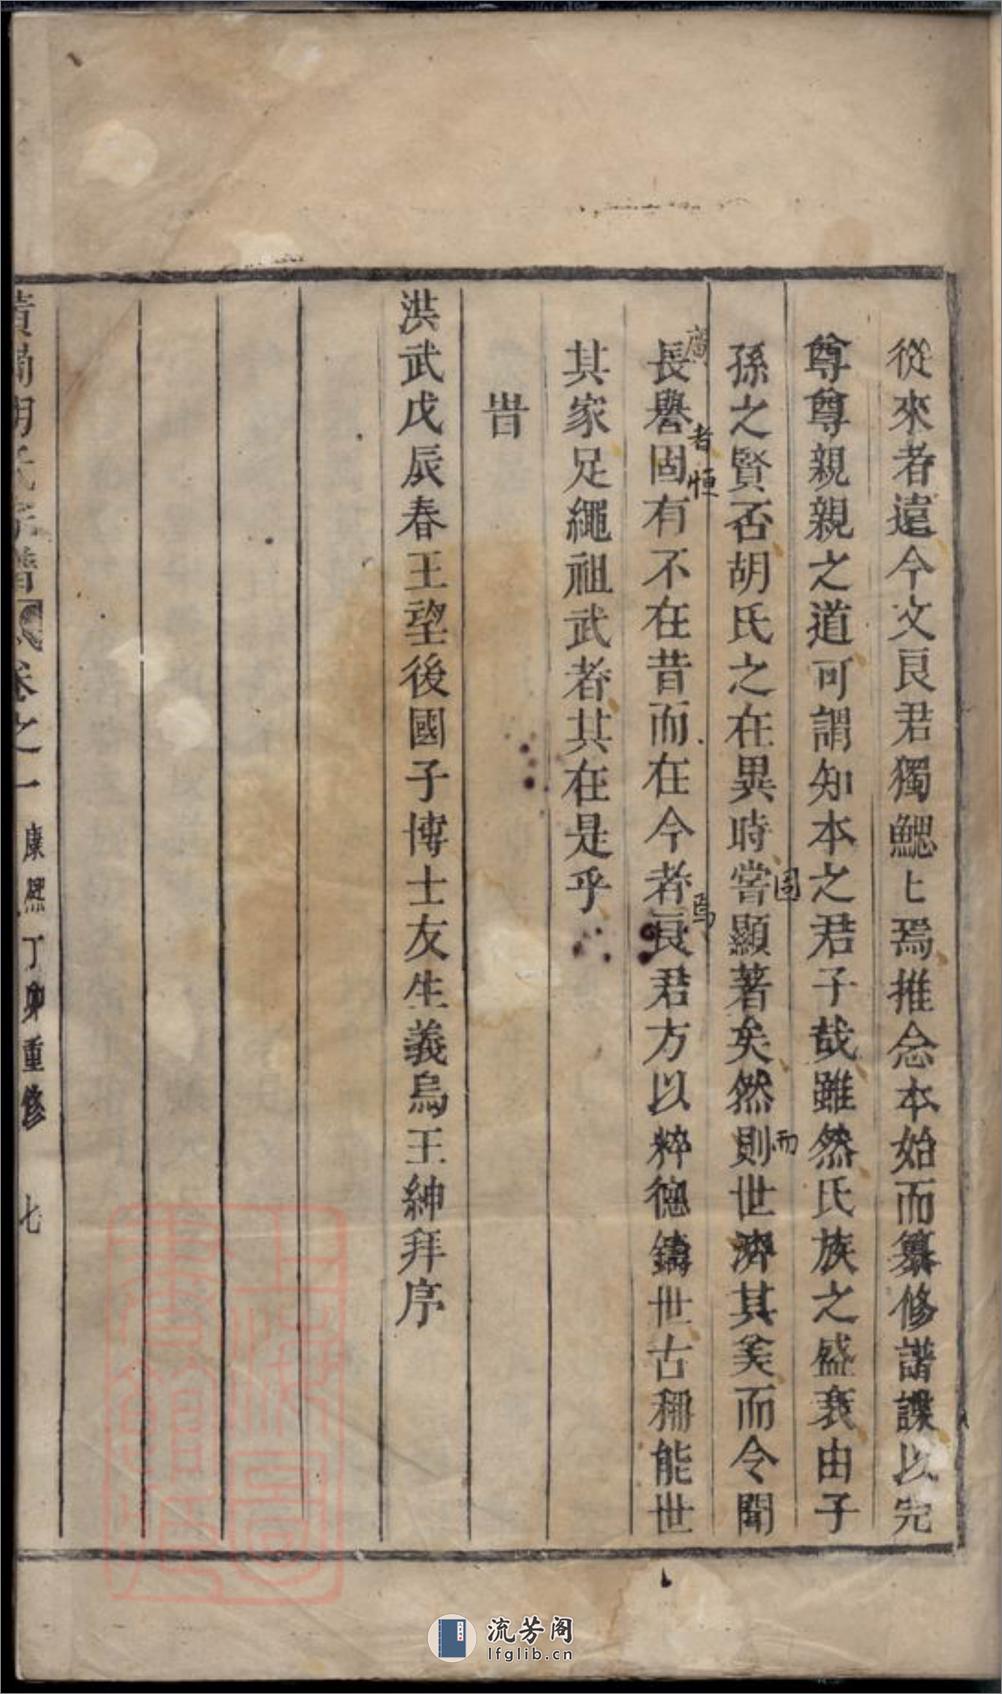 從來者遠今文良君獨鰓〻焉推念本始而纂修譜諜以完
尊尊親親之道可謂知本之君子哉雖然氏族之盛衰由子
固
而
孫之賢否胡氏之在異時嘗顯著矣然則世濟其美而令聞
者恒
焉
長譽固有不在昔而在今者良君方以粹德鑄世古稱能世
其家足繩祖武者其在是乎
旹
洪武戊辰春王望後國子博士友生義烏王紳拜序
胡氏宗譜 卷之一 康熙丁卯重修 七
上海圖書館藏
流芳阁
lfglib.cn